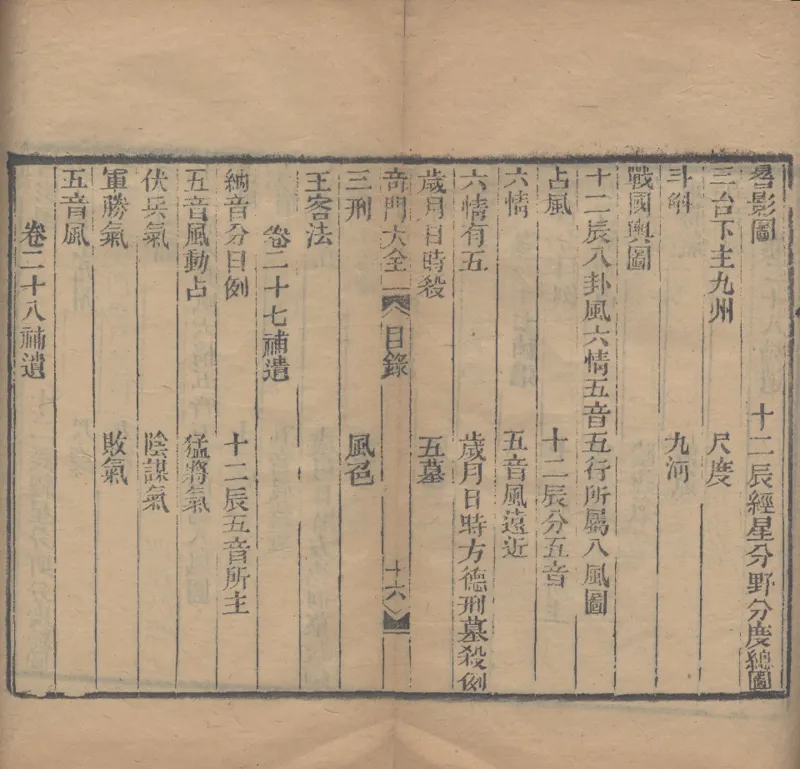 晷影圖 十二辰經星分野分度總圖
三台下主九州 尺度
斗斛 九河
戰國輿圖
十二辰八卦風六情五音五行所屬八風圖
占風 十二辰分五音
六情 五音風遠近
六情有五 歲月日時方德刑墓殺例
歲月日時殺 五墓
奇門大全 目錄 十六
三刑 風色
主客法
卷二十七補遺
納音分日例 十二辰五音所主
五音風動占 猛將氣
伏兵氣 陰謀氣
軍勝氣 敗氣
五音風
卷二十八補遺